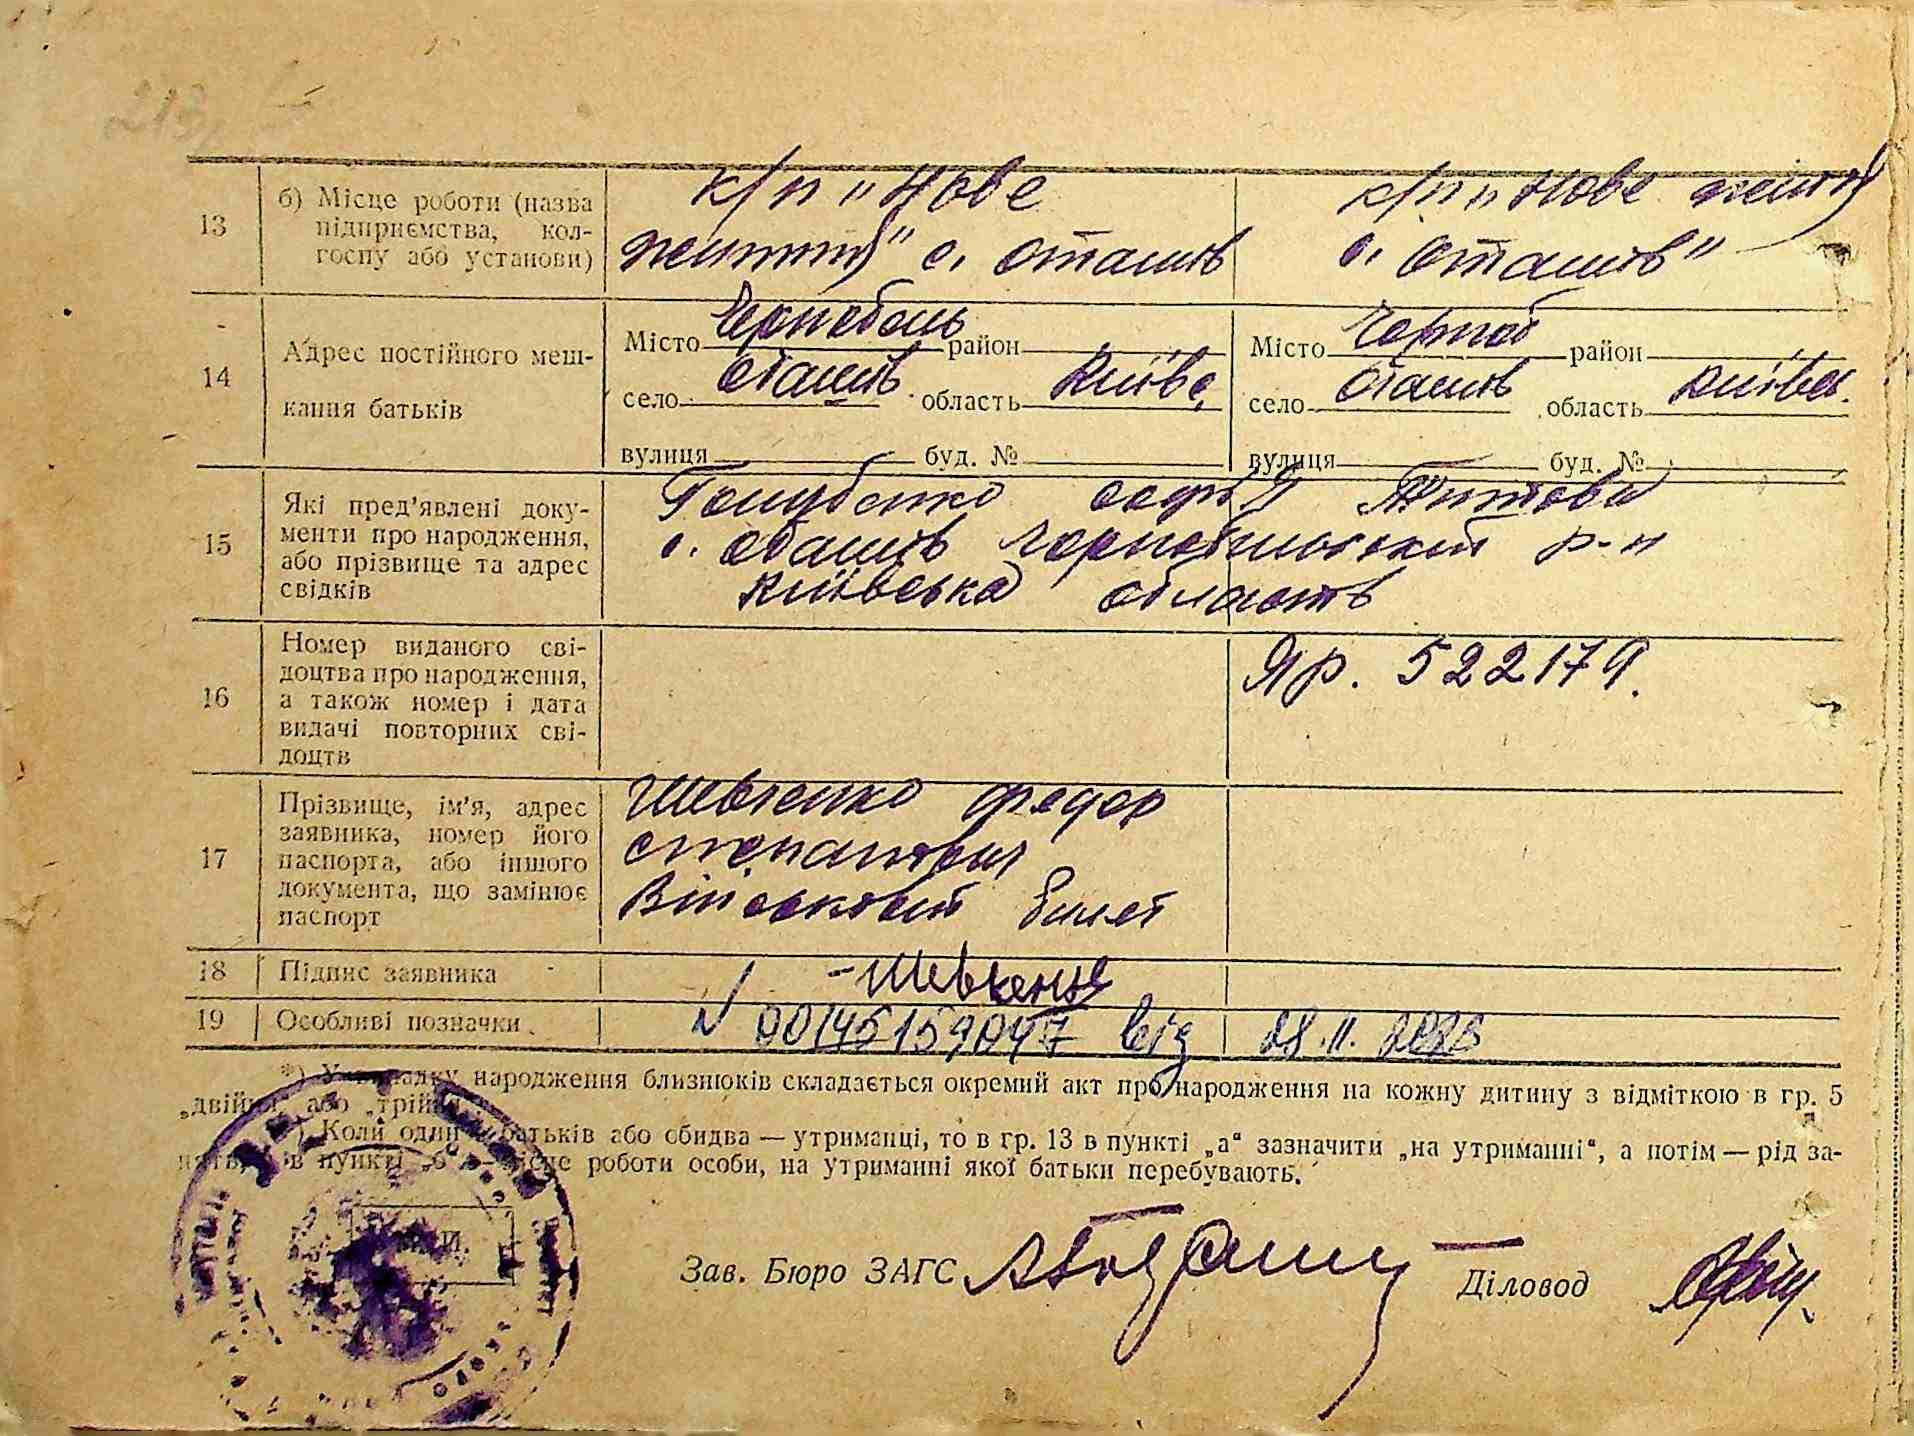 213
13
б) Місце роботи (назва
підприємства, кол-
госпу або установи)
к/п „Нове
життя" с. Оташів
к/п „Нове життя
с. Оташів"
14
Адрес постійного меш-
кання батьків
Місто Чорнобиль район
село Оташів область Київс.
вулиця буд. №
Місто Чорноб район
село Оташів область Київськ.
вулиця буд. №
15
Які пред'явлені доку-
менти про народження,
або прізвище та адрес
свідків
Голубенко Софія Титова
с. Оташів Чорнобильський р-н
Київська область
16
Номер виданого сві-
доцтва про народження,
а також номер і дата
видачі повторних сві-
доцтв
ЯР. 522179.
17
Прізвище, ім'я, адрес
заявника, номер його
паспорта, або іншого
документа, що замінює
паспорт
Шевченко Федор
Степанович
Військовий билет
18
Підпис заявника
- Шевченко
19
Особливі позначки
00145159047 від 28.11.2023
*) У випадку народження близнюків складається окремий акт про народження на кожну дитину з відміткою в гр. 5
„двійня" або „трійня".
Коли один з батьків або обидва — утриманці, то в гр. 13 в пункті „а" зазначити „на утриманні", а потім — рід за-
в пункті „б" — місце роботи особи, на утриманні якої батьки перебувають.
Зав. Бюро ЗАГС
Діловод